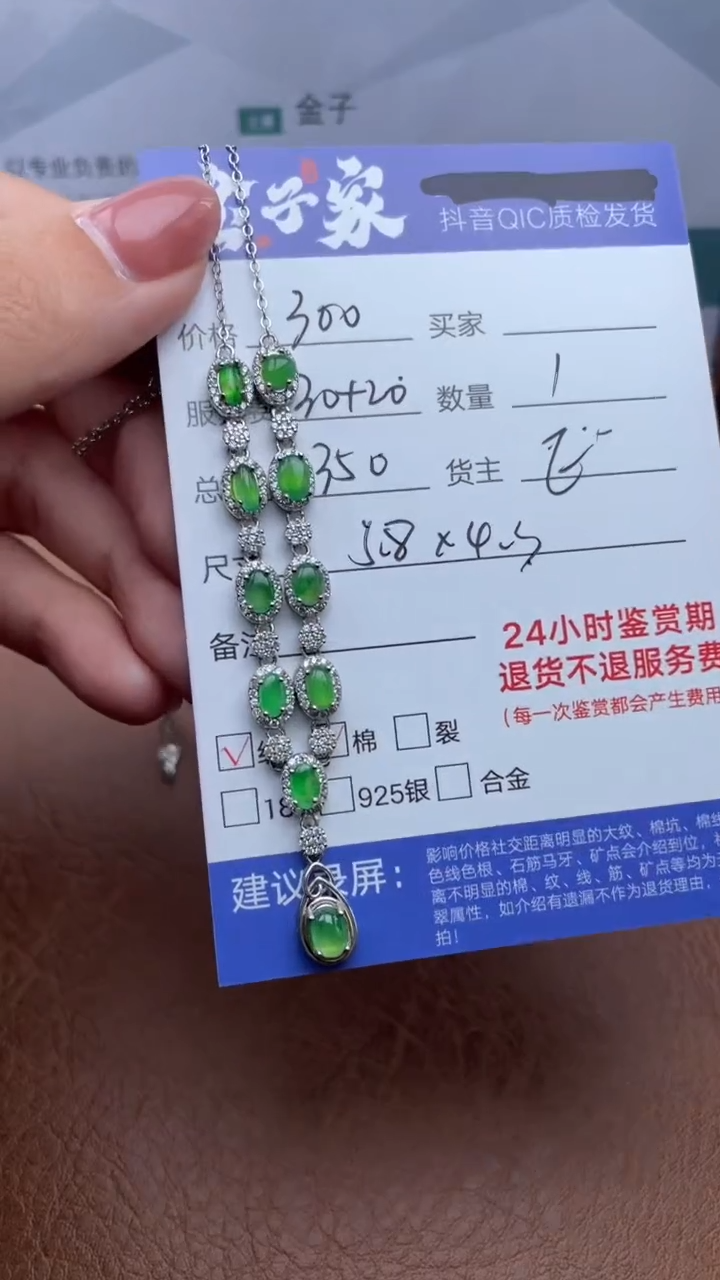 金子
以专业负责的
金子家
抖音QIC质检发货
价格 300 买家
30+20 数量 1
总 350 货主
尺 5.8×4
备注
24小时鉴赏期
退货不退服务费
(每一次鉴赏都会产生费用
棉 裂
18 925银 合金
建议录屏：
影响价格社交距离明显的大纹、棉坑、棉线
色线色根、石筋马牙、矿点会介绍到位，
离不明显的棉、纹、线、筋、矿点等均为
翠属性，如介绍有遗漏不作为退货理由，
拍！